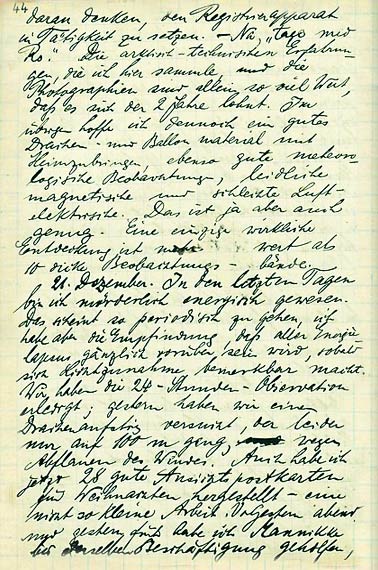 44
daran denken, den Registrierapparat
in Tätigkeit zu setzen. – Na,
Die arktisch-technischen Erfahrun-
gen, die ich hier sammle, und die
Photographien sind allein so viel Wert,
daß es sich der 2 Jahre lohnt. Im
übrigen hoffe ich dennoch ein gutes
Drachen- und Ballonmaterial mit
Heimzubringen, ebenso gute meteoro-
logische Beobachtungen, leidliche
magnetische und schlechte Luft-
elektrische. Das ist ja aber auch
genug. Eine einzige wirkliche
Entdeckung ist mehr wert als
10 dicke Beobachtungs-bände.
21. Dezember. In den letzten Tagen
bin ich mörderlich energisch gewesen.
Das scheint so periodisch zu gehen, ich
habe aber die Empfindung, daß aller
gänzlich vorüber sein wird, sobald
sich Lichtzunahme bemerkbar macht.
Wir haben die 24-Stunden-Observation
erledigt, gestern haben wir einen
Drachenaufstieg versucht, der leider
nur auf 100 m ging, wegen
Abflauen des Windes. Auch habe ich
jetzt 28 gute Ansichtspostkarten
für Weihnachten hergestellt – eine
nicht so kleine Arbeit. Vorgestern abend
und gestern früh habe ich
bei derselben Beschäftigung geholfen,